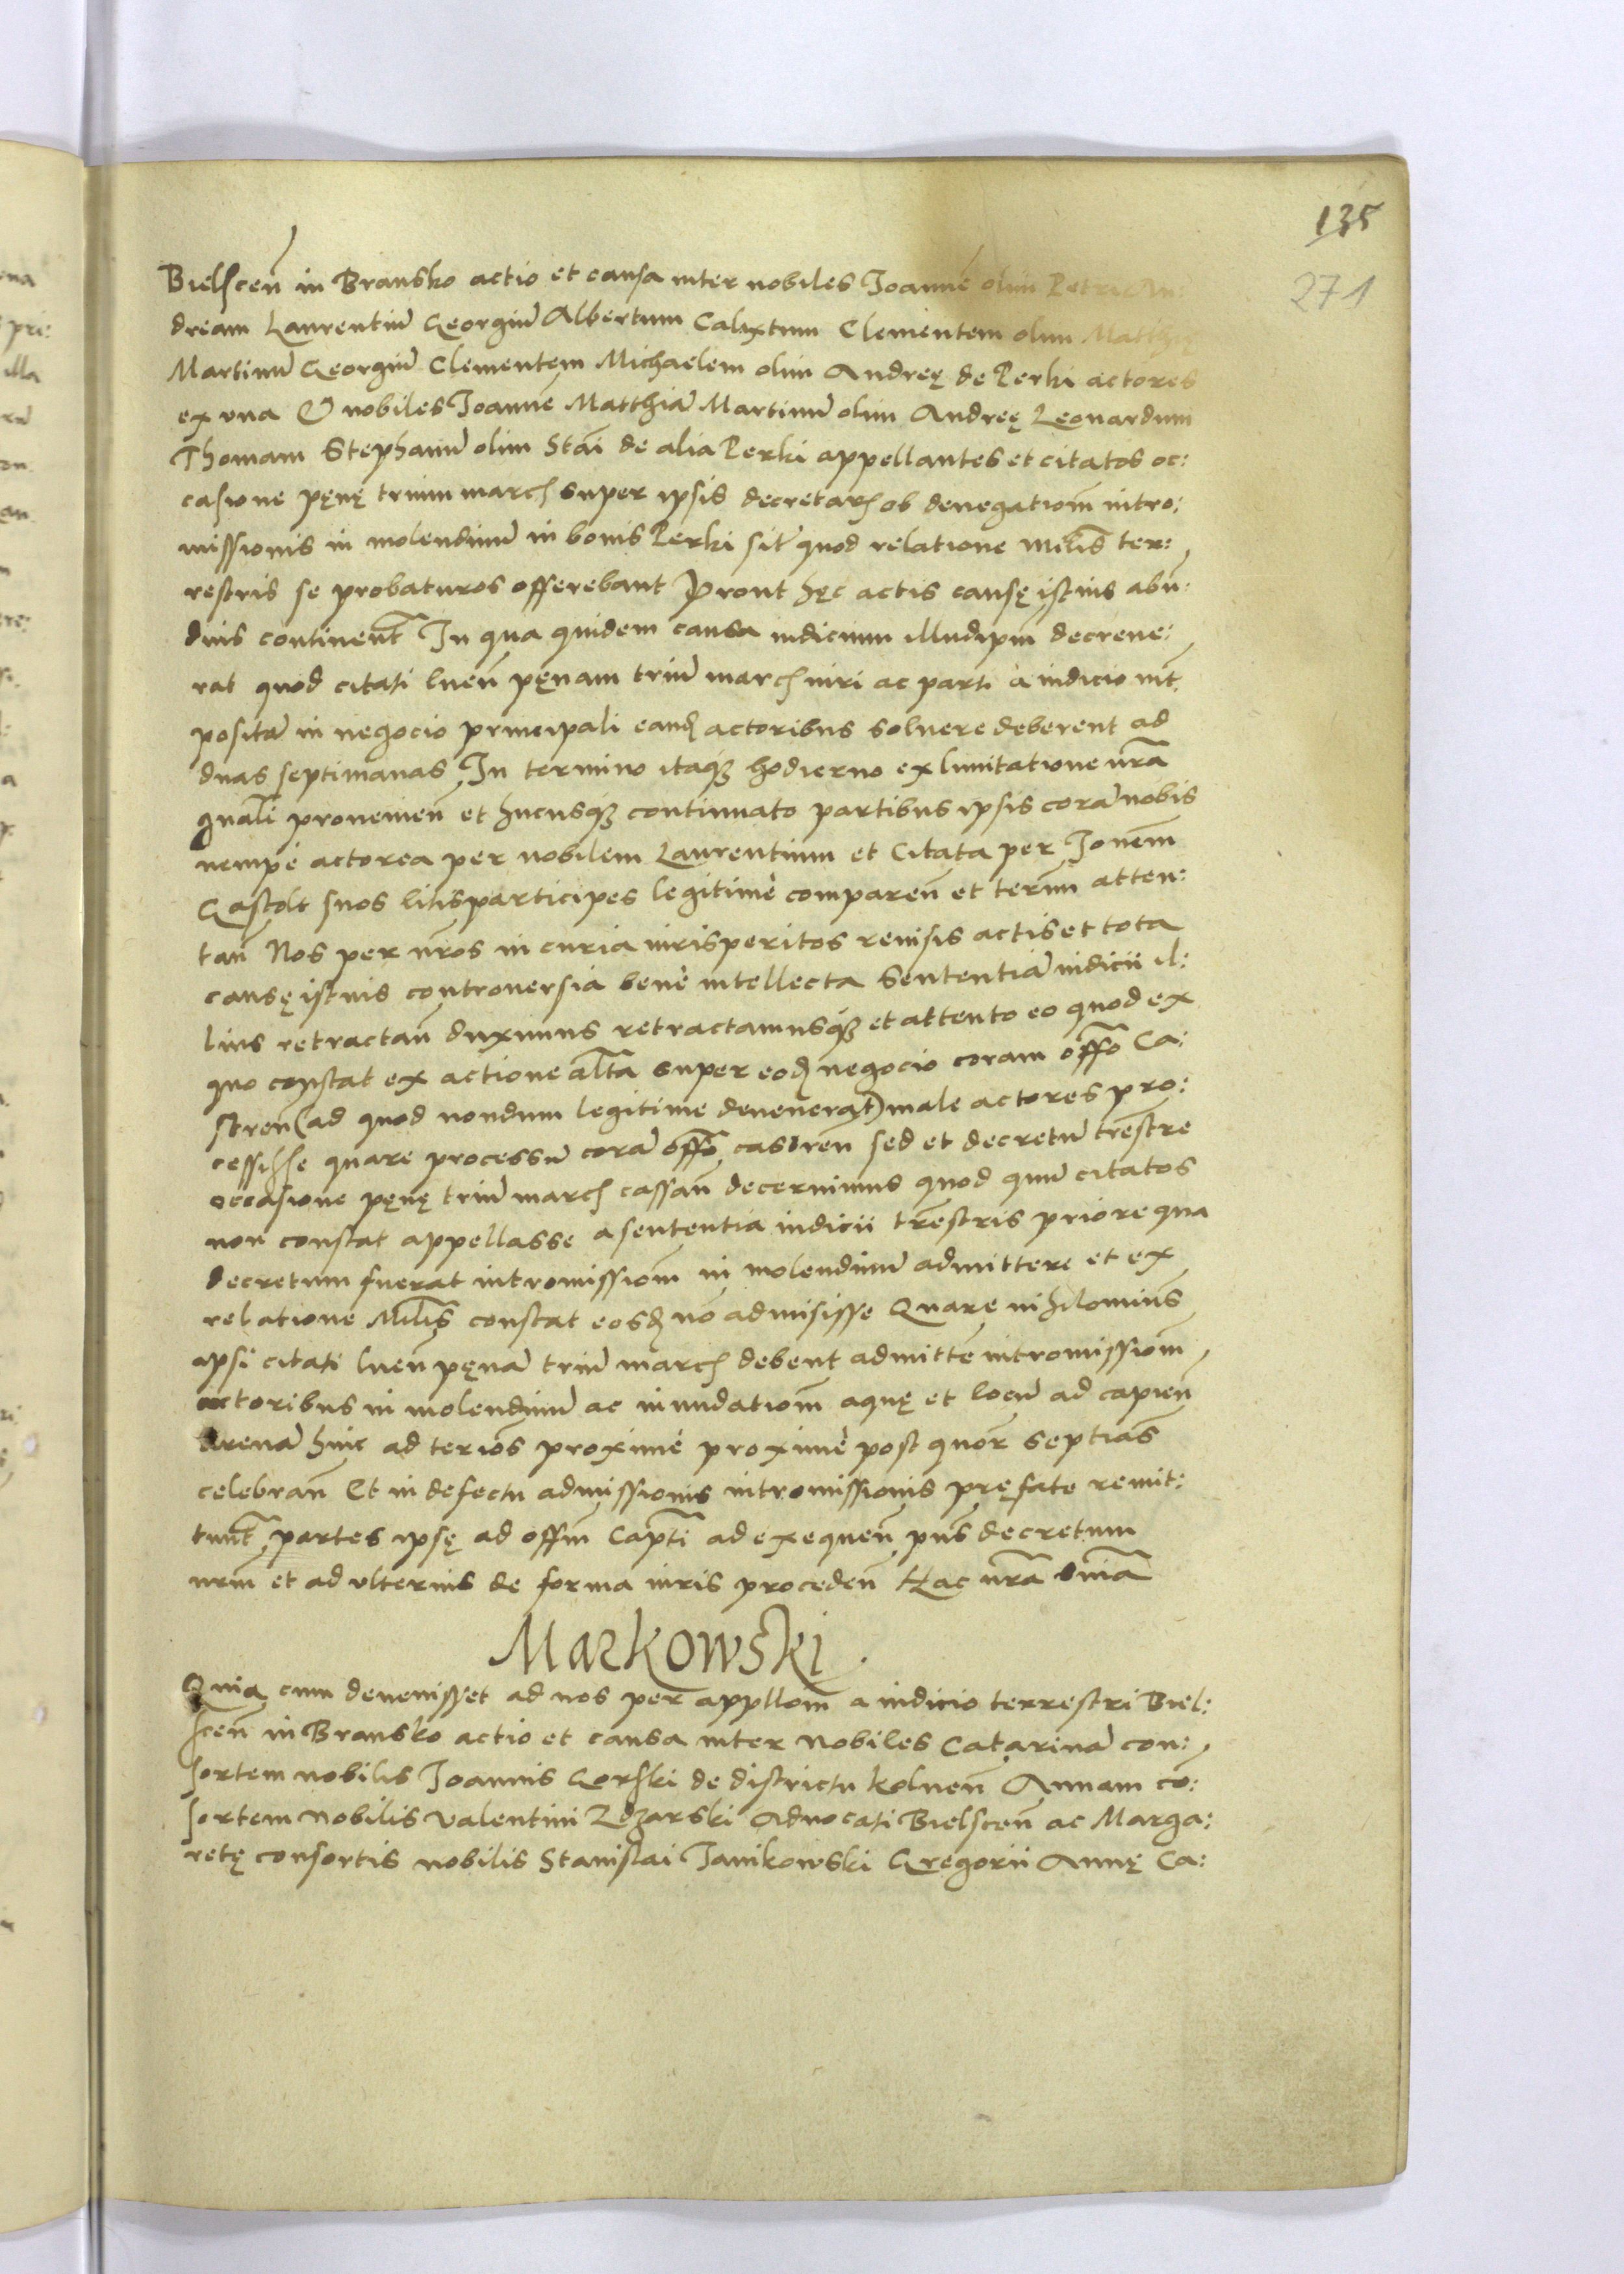 135
271
Bielscen̄ in Bransko actio et causa inter nobiles Joannē olim Petri An:
dream Laurentiū Georgiū Albertum Calixtum Clementem olim Matthię
Martinū Georgiū Clementem Michaelem olim Andreę de Perki actores
ex vna Et nobiles Joannē Matthiā Martinū olim Andreę Leonardum
Thomam Stephanū olim Stāi de alia Perki appellantes et citatos oc:
casione pęnę trium march super ipsis decretarꝫ ob denegationē intro:
missionis in molendinū in bonis Perki sitū quod relatione Milis̄ ter:
restris se probaturos offerebant Prout hęc actis causę istius abun:
dius continent̄ In qua quidem causa iudicium illud ipm̄ decreue:
rat quod citati luen̄ pęnam triū march iuri ac parti à iudicio int̄
positā in negocio principali eandꝫ actoribus soluere deberent ad
duas septimanas In termino itaqꝫ hodierno ex limitatione nr̄a
gnāli proueniен̄ et hucusqꝫ continuato partibus ipsis corā nobis
nempè actorea per nobilem Laurentium et Citata per Jonem̄
Gastolt suos litisparticipes legitimè comparen̄ et term̄ atten:
tan̄ Nos per nr̄os in curia iurisperitos reuisis actis et tota
causę istius controuersia benè intellecta Sententiā iudicii il:
lius retractan̄ duximus retractamusqꝫ et attento eo quod ex
quo constat ex actione alt̄a super eodꝫ negocio coram offō Ca:
stren̄ (ad quod nondum legitime deuenerat) male actores pro:
cessisse quare processū corā offō castren̄ sed et decretū trēstre
occasione pęnę triū march cassan̄ decernimus quod quū citatos
non constat appellasse a sententia iudicii trēstris priore qua
decretum fuerat intromissionē in molendinū admittere et ex
relatione Milis̄ constat eosdꝫ nō admisisse Quare nihilominus̄
ipsi citati luen̄ pęnā triū march debent admittē intromissionē
actoribus in molendinū ac inundationē aquę et locū ad capien̄
arenā hinc ad terīos proximè proximè post quor̄ septiās
celebran̄ Et in defectu admissionis intromissionis pręfate remit:
tunt̄ partes ipsę ad offm̄ Capt̄i ad exequen̄ pn̄s decretum
nrm̄ et ad vlterius de forma iuris proceden̄ Hac nr̄a snīa
Markowski.
Quia cum deuenisset ad nos per appllom̄ a iudicio terrestri Biel:
scen̄ in Bransko actio et causa inter Nobiles Catarinā con:
sortem nobilis Joannis Gorski de districtu kolnen̄ Annam cō:
sortem Nobilis Valentini Zdzarski Aduocati Bielscen̄ ac Marga:
retę consortis nobilis Stanislai Janikowski Gregorii Annę Ca: